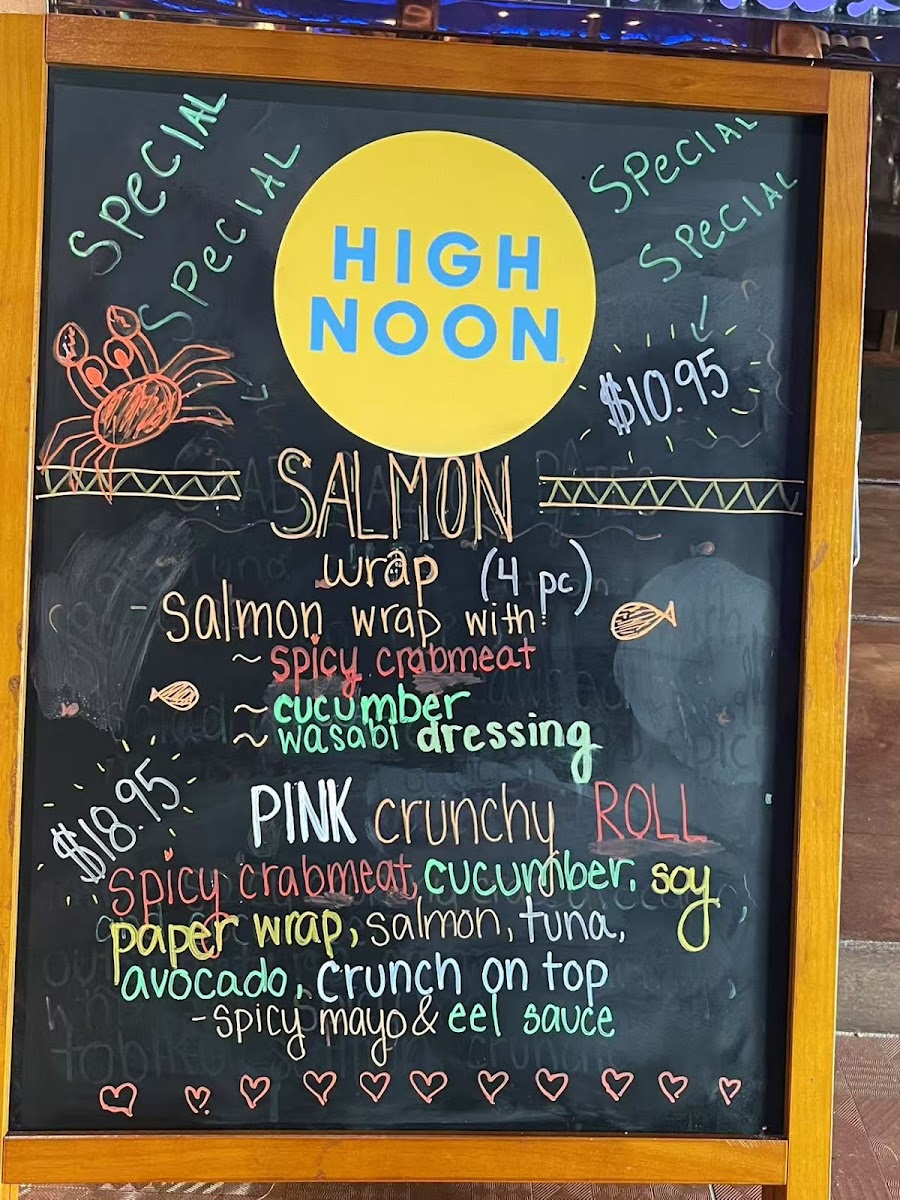 SPECIAL
SPECIAL
SPECIAL
SPECIAL
HIGH
NOON
$10.95
SALMON
wrap (4 pc)
- Salmon wrap with:
~ spicy crabmeat
~ cucumber
~ wasabi dressing
$18.95
PINK crunchy ROLL
spicy crabmeat, cucumber, soy
paper wrap, salmon, tuna,
avocado, crunch on top
- spicy mayo & eel sauce